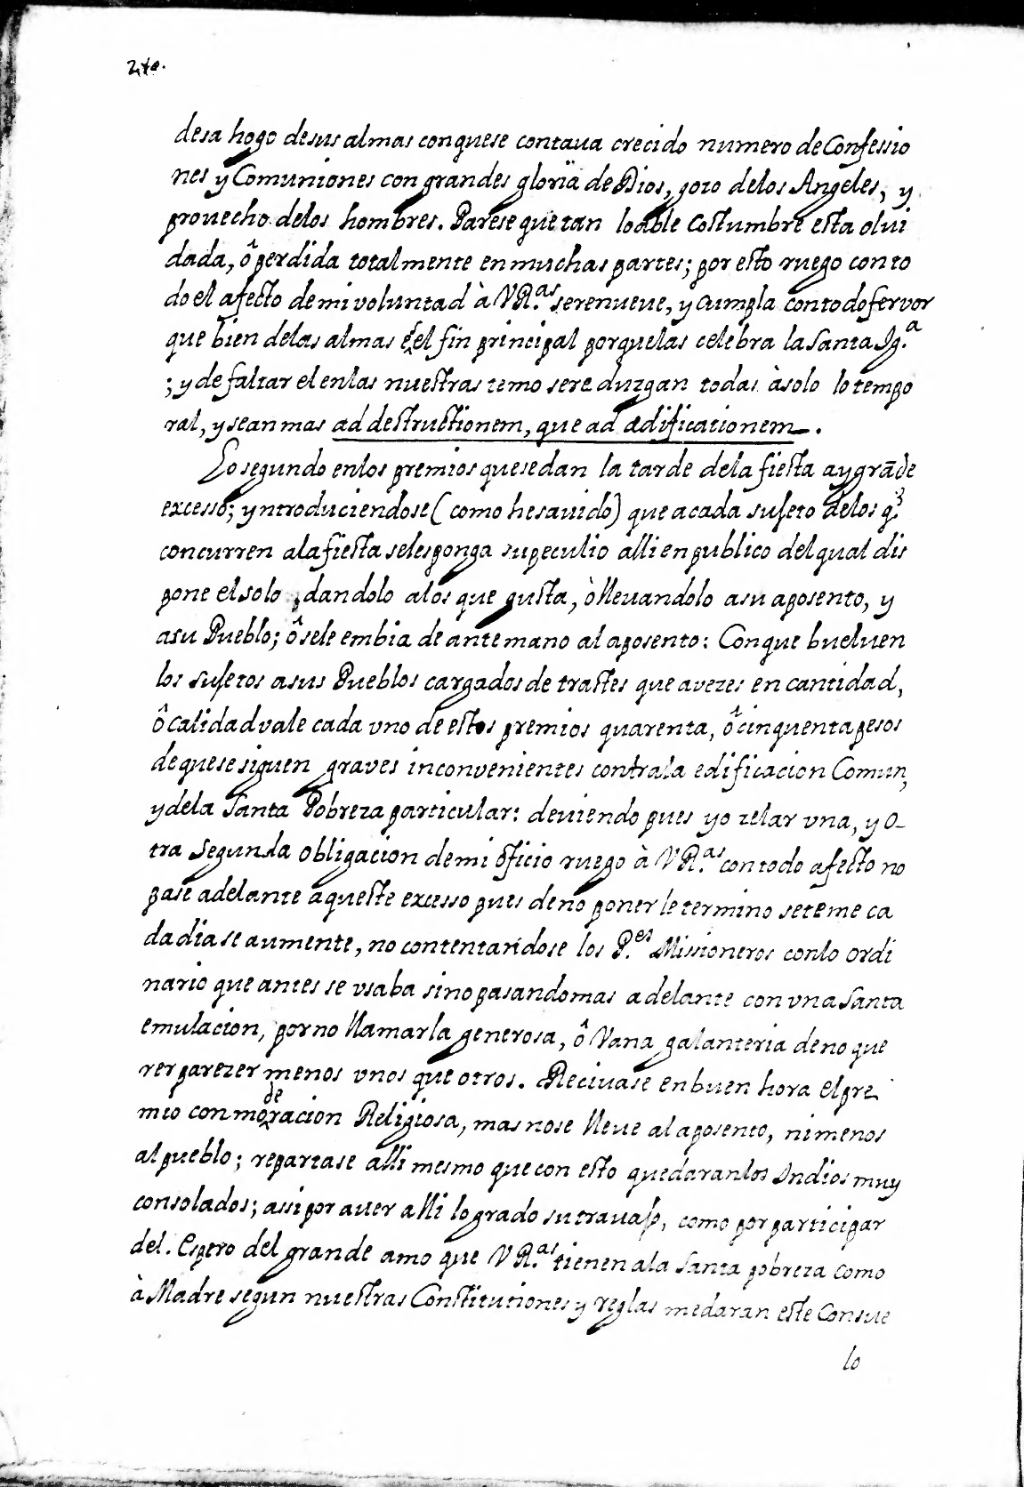 desa hogo desus almas conquese contaua crecido numero de Confessio
nes y Comuniones con grandes gloria de Dios, gozo delos Angeles, y
prouecho delos hombres. Parese que tan loable Costumbre esta olui
dada, ô perdida totalmente en muchas partes; por esto ruego con to
do el afecto de mi voluntad à VR.as serenueue, y cumpla contodo fervor
que bien delas almas es el fin principal porquelas celebra la Santa Ig.a
; y de faltar el enlas nuestras temo sere duzgan todas àsolo lo tempo
ral, y sean mas ad destructionem, que ad ædificationem.
Lo segundo enlos premios quesedan la tarde dela fiesta ay grãde
excesso; yntroduciendose (como hesauido) que acada sujeto delos q.e
concurren ala fiesta selesponga supeculio alli en publico del qual dis
pone el solo, dandolo alos que gusta, ò lleuandolo asu aposento, y
asu Pueblo; ô sele embia de ante mano al aposento: Conque bueluen
los sujetos asus Pueblos cargados de trastes que avezes en cantidad,
ô calidad vale cada vno de estos premios quarenta, ô cinquenta pesos
de quese siguen graves inconvenientes contra la edificacion Comun,
y dela Santa Pobreza particular: deuiendo pues yo zelar vna, y o-
tra Segunda obligacion de mi oficio ruego à VR.as con todo afecto no
pase adelante aqueste excesso pues deno poner le termino seteme ca
da dia se aumente, no contentandose los P.es Missioneros conlo ordi
nario que antes se vsaba sino pasandomas adelante con vna Santa
emulacion, por no llamarla generosa, ô Vana galanteria de no que
rer parezer menos vnos que otros. Reciuase en buen hora el pre
mio con moderacion Religiosa, mas nose lleue al aposento, ni menos
al pueblo; repartase alli mesmo que con esto quedaran los Indios muy
consolados; asi por auer alli logrado su trauajo, como por participar
del. Espero del grande amo que VR.as tienen ala Santa pobreza como
à Madre segun nuestras Constituciones y reglas medaran este Consue
lo